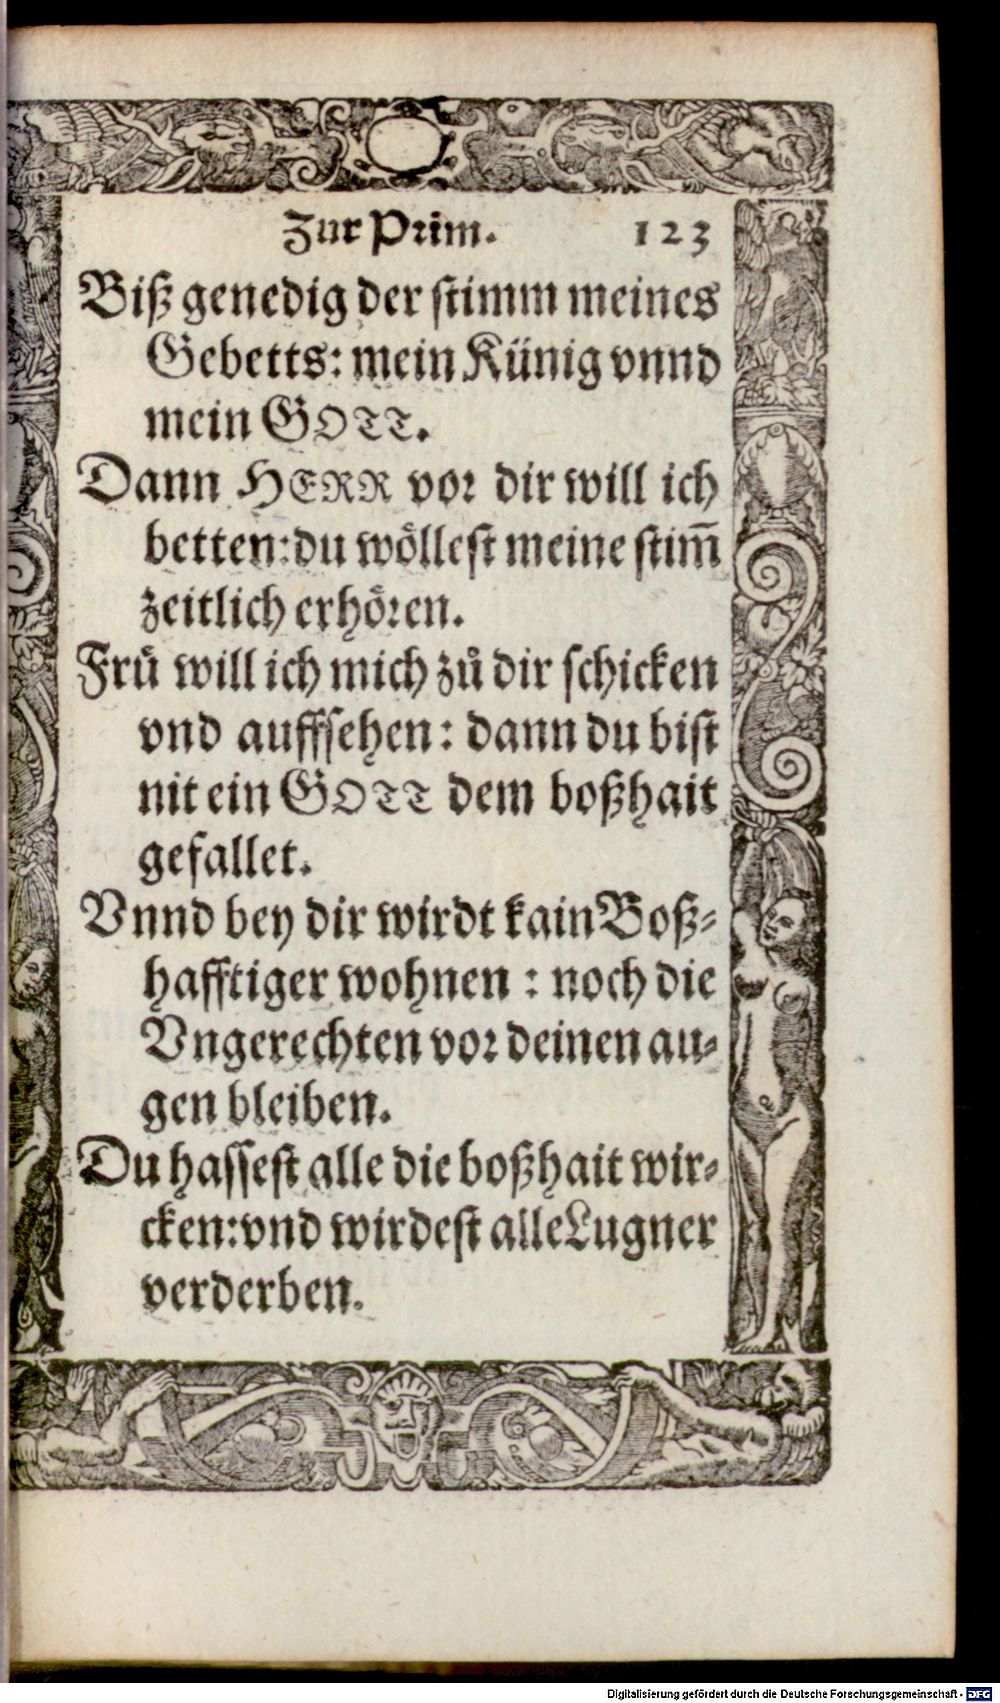 Zur Prim. 123
Biß genedig der stimm meines
Gebetts: mein Künig vnnd
mein GOTT.
Dann HERR vor dir will ich
betten: du wöllest meine stim̄
zeitlich erhören.
Frü will ich mich zů dir schicken
vnd auffsehen: dann du bist
nit ein GOTT dem boßhait
gefallet.
Vnnd bey dir wirdt kain Boß-
hafftiger wohnen: noch die
Vngerechten vor deinen au-
gen bleiben.
Du hassest alle die boßhait wir-
cken: vnd wirdest alle Lugner
verderben.
Digitalisierung gefördert durch die Deutsche Forschungsgemeinschaft - DFG